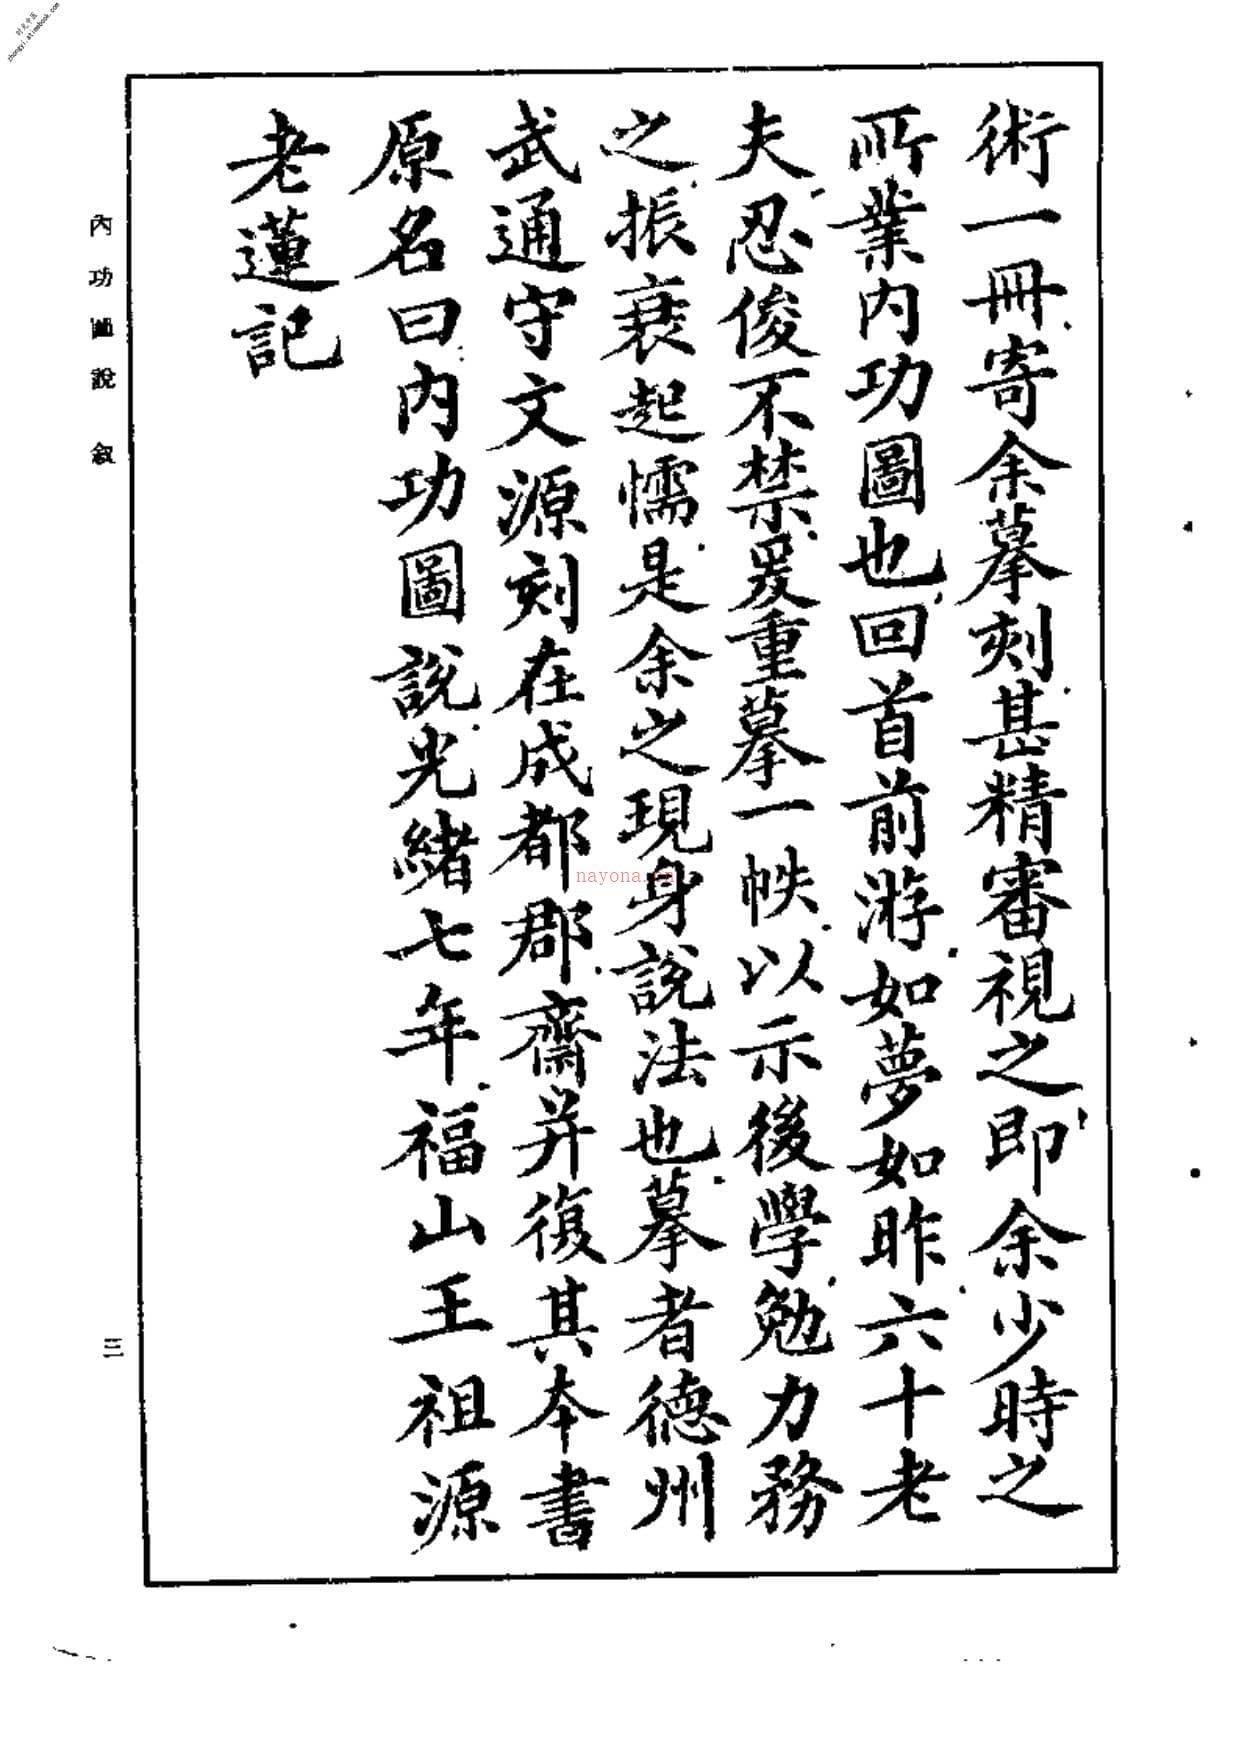 术一冊寄余摹刻甚精審視之即余少時之
所業内功圖也回首前游如夢如昨六十老
夫忍俊不禁爰重摹一帙以示後學勉力務
之振衰起懦是余之現身說法也摹者德州
武通守文源刻在成都郡齋并復其本書
原名曰内功圖說光緒七年福山王祖源
老蓮記
内功圖說 敘
三
nayona.cn
时光中医
zhongyi.atimebook.com